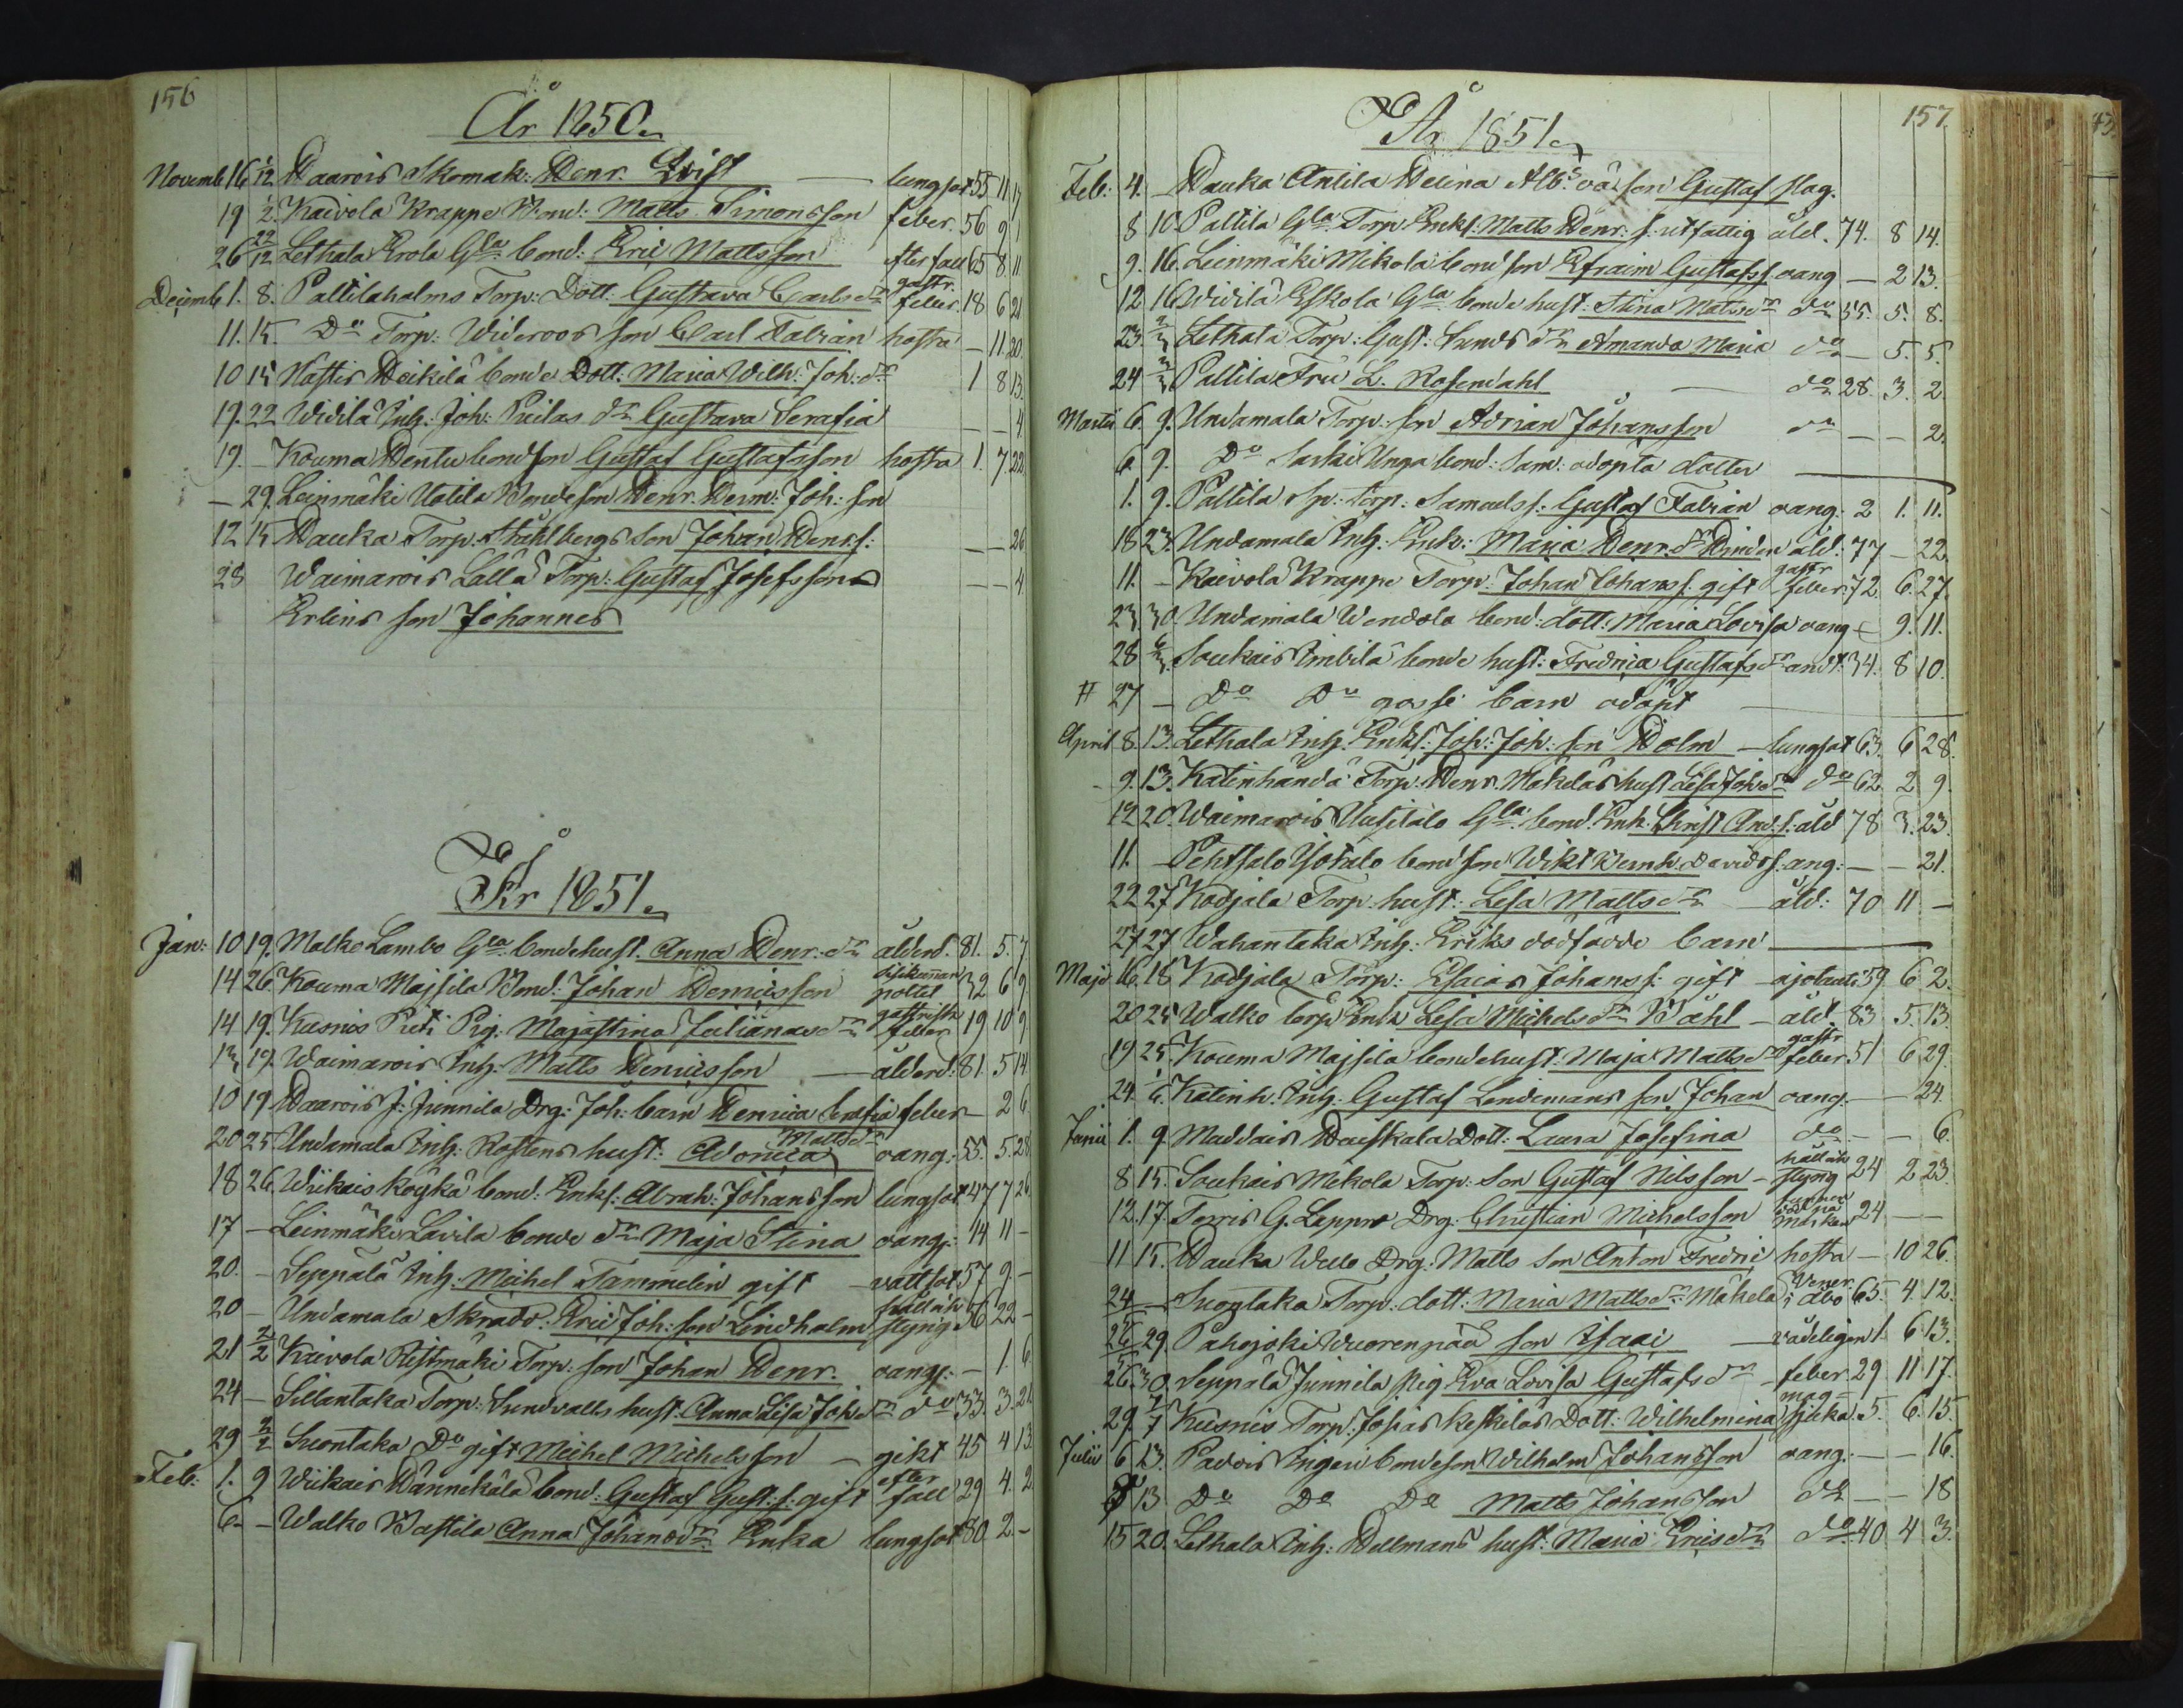 156
År 1850.
Novemb. 16 1/12 Haarois Skomak: Henr. Qvist — lungsot 55 11 17
19 1/2. Kaivola Krappe Bond: Matts Simonsson feber. 56 9 1
26 22/12 Lethala Erola Gla bond: Eric Mattsson efter fall 65 8. 11
Decemb. 1. 8. Paltilaholms Torp: Dott: Gustava Carlsdr gastr. feber. 18 6 21
11. 15. Do Torp: Wideroos son Carl Fabian hosta — 11 20.
10 15 Nästis Heikilä bonde Dott: Maria Wilh: Joh: dr 1 8 13.
19. 22 Widilä Inh: Joh: Puilas dr Gustava Serafia — — 4
19. — Kouma Hentu bond son Gustaf Gustafsson hosta 1. 7. 22
— 29. Leinmäki Uotila Bonde son Henr. Herm: Joh: son
12 15 Hauka Torp. Ståhlbergs son Johan Henr.s: — — 26
28 Waimarois Lallå Torp: Gustaf Josefsson — — 4
Erlins son Johannes
År 1851.
Jan: 10 19. Malko Lambo Gla bondehust. Anna Henr. dr ålderd. 81. 5. 7
14 26 Kouma Majsila Bond: Johan Henricsson 32 6 9
14 19. Kusnis Prti Pig. Majastina Julianasdr gastrisk feber 19 10 9
13 19. Waimarois Inh: Matts Henricsson — ålderd: 81. 5 14
10 19 Haarois J: Junnila Drg: Joh: barn Henrica Serafia feber — 2 6
20 25 Undamala Inh: Rostens hust: Adorica Mattsdr vang: 55. 5. 28
18 26. Wiikais Köykä bond: Enkl: Abrah: Johansson lungsot 47 7 26
17 — Leinmäki Lavila bonde dr Maja Stina vang: 14 11 —
20. — Seppälä Inh: Michel Tammelin gift — vattsot 57 9. —
20 — Undamala Skradd: Eric Joh: son Lindholm håll och styng 56 22 —
21 2/2 Kaivola Ristmäki Torp. son Johan Henr. vang: — 1. 6
24 — Sillantaka Torp: Sundvalls hust: Anna Lisa Joh dr do 33. 3. 21
29 2/2 Suontaka Do gift Michel Michelsson — gikt 45 4 13
Feb: 1. 9 Wiikais Hännikälä bond: Gustaf Gust: s: gift efter fall 29 4. 2
6 — — Walko Wastila Anna Johansdr Enka lungsot 80. 2. —
157
År 1851.
Feb: 4. — Hauka Antila Helena Alb: oä: son Gustaf slag.
8 10 Paltila Gla Torp Enkl. Matts Henr: s: utfattig åld. 74. 8 14.
9. 16. Leinmäki Mikola bond son Efraim Gustafss. vang — 2 13.
12 16 Widilä Eskola Gla bonde hust: Stina Matts dr do 55. 5. 8.
23. 2/3 Lethala Torp: Gust: Sunds dr Amanda Maria do — 5. 5.
24 2/3 Paltila Fru L. Rosendahl — do 28. 3. 2.
Martii 6. 9. Undamala Torp: son Adrian Johansson do — — 2.
6. 9. Do Sarki Unga bond: Sam: odöpta dotter —
1. 9. Paltila Sp: torp: Samuelss: Gustaf Fabian vang: 2 1. 11.
18 23. Undamala Inh: Enk: Maria Henr. dr Hinden åld: 77 — 22.
11. — Kaivola Krappe Torp: Johan Johanss. gift gastr feber 72. 6. 27.
23 30. Undamala Wendola bond: dott: Maria Lovisa vang — 9. 11.
28 6/4. Soukais Imbilä bonde hust: Fredrica Gustafsdr andt. 34. 8 10.
# 27 — Do Do gosse barn odöpt —
April 8. 13. Lethala Inh. Enkl: Joh: Joh: son Holm — lungsot 63. 6 28.
9. 13. Katinhändä Torp. Henr. Mäkeläs hust Lisa Johsdr do 62 2 9.
12 20. Waimarois Uusitalo Gla bond. Enk. Christ And. s: åld 78 3. 23.
11. — Pehtsalo Yötalo bond son Wikt Bernh. Davids s. ang: — — 21.
22 27 Kodjala Torp hust: Lisa Matts dr — åld: 70 11 —
27 27 Wahantaka Inh. Eriks dödfödde barn —
Maji 16. 18 Kodjala Torp: Esaias Johanss: gift — 59 6 2.
20 25 Walko torp Enk Lisa Michelsdr Wåhl — åld 83 5. 13.
19 25. Kouma Majsila bondehust: Maja Mattsdr gastr feber 51 6 29.
24 1/6 Katinh. Inh: Gustaf Lindemans son Johan vang. — — 24
Junii 1. 9 Maddais Hauskala Dott: Laura Josefina do — — 6.
8 15. Soukais Mikola Torp: son Gustaf Nilsson — håll och styng 24 2 23.
12. 17. Torris G. Leppno Drg: Christian Michelsson funnen död på marken 24 —
11 15. Hauka Wille Drg: Matts son Anton Fredric hosta — 10 26.
24 — Suontaka Torp: dott: Maria Mattsdr Mäkelä Vener. i Åbo 65. 4. 12.
26 29 Pahojoki Wuorenpää son Isaac — vådeligen 1. 6 13.
26. 30. Seppälä Junnila pig Eva Lovisa Gustafs dr — feber 29 11 17.
29. 7/7 Kusnis Torp: Josias Keskiläs Dott: Wilhelmina mag-sjuka 5. 6. 15.
Julii 6 13. Padois Ingeri bondeson Wilhelm Johansson vang. — — 16.
13 Do Do Do Matts Johansson do — — 18
15 20. Lethala Inh: Hellmans hust: Maria Ericsdr do 40 4 3.